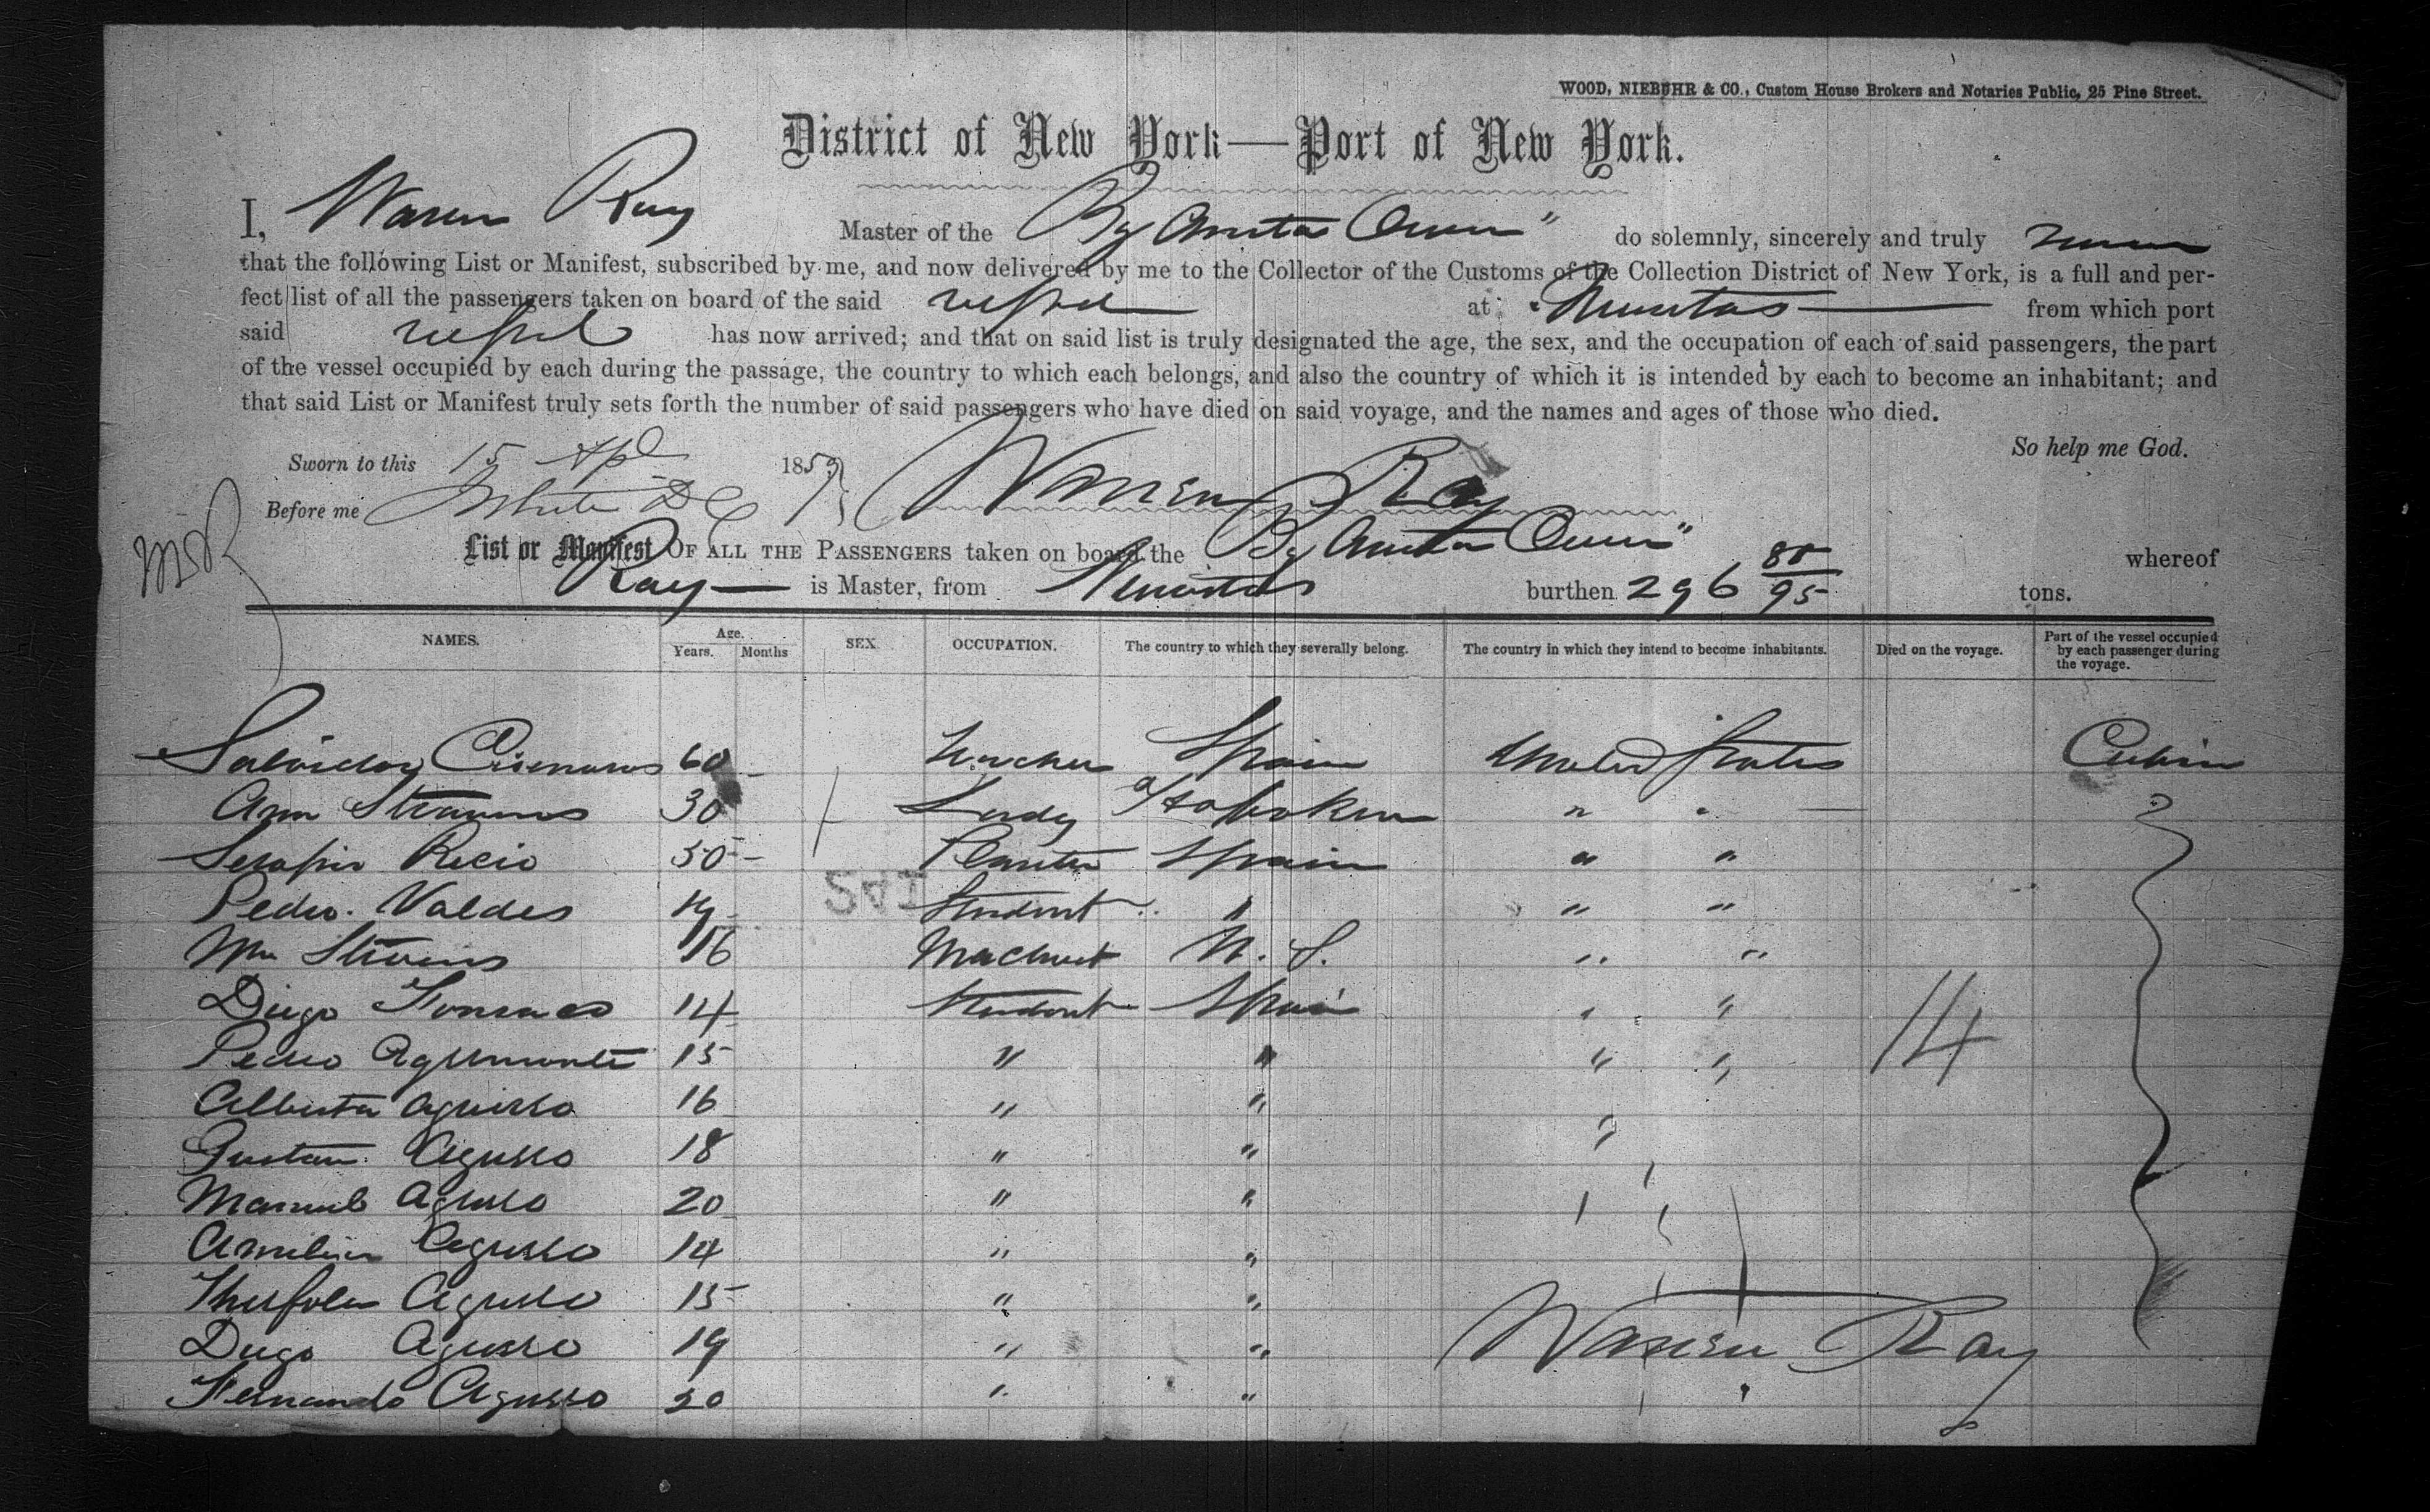 WOOD, NIEBUHR & CO., Custom House Brokers and Notaries Public, 25 Pine Street.
District of New York—Port of New York.
I, Warren Ray Master of the Bg Anita Owen" do solemnly, sincerely and truly swear
that the following List or Manifest, subscribed by me, and now delivered by me to the Collector of the Customs of the Collection District of New York, is a full and per-
fect list of all the passengers taken on board of the said vessel at Nuevitas from which port
said vessel has now arrived; and that on said list is truly designated the age, the sex, and the occupation of each of said passengers, the part
of the vessel occupied by each during the passage, the country to which each belongs, and also the country of which it is intended by each to become an inhabitant; and
that said List or Manifest truly sets forth the number of said passengers who have died on said voyage, and the names and ages of those who died.
So help me God.
Sworn to this 15 Apl 1859
Before me White D C Warren Ray
List or Manifest OF ALL THE PASSENGERS taken on board the Bg Anita Owen" whereof
Ray is Master, from Nuevitas burthen 296 88/95 tons.
NAMES. Age. Years. Months SEX. OCCUPATION. The country to which they severally belong. The country in which they intend to become inhabitants. Died on the voyage. Part of the vessel occupied by each passenger during the voyage.
Salvador Cisneros 60 Spain United States Cabin
Ann Stevens 30 Lady Hoboken " "
Serapin Recio 50 Planter Spain " "
Pedro Valdes 19 Student " " "
Wm Stevens 16 Machinist U. S. " "
Diego Fonseca 14 Student Spain " "
Pedro Agrumonte 15 " " " "
Alberto Aguero 16 " " "
Gustav Aguero 18 " "
Manuel Aguero 20 " "
Amilian Aguero 14 " "
Aguero 15 " "
Diego Aguero 19 " "
Fernando Aguero 20 " "
14
Warren Ray